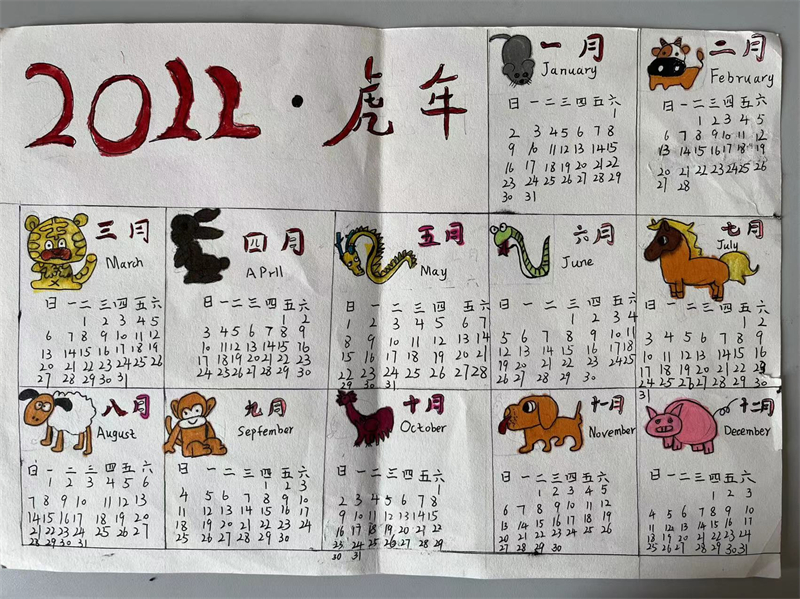 2022·虎年
一月
January
日 一 二 三 四 五 六
1
2 3 4 5 6 7 8
9 10 11 12 13 14 15
16 17 18 19 20 21 22
23 24 25 26 27 28 29
30 31
二月
February
日 一 二 三 四 五 六
1 2 3 4 5
6 7 8 9 10 11 12
13 14 15 16 17 18 19
20 21 22 23 24 25 26
27 28
三月
March
日 一 二 三 四 五 六
1 2 3 4 5
6 7 8 9 10 11 12
13 14 15 16 17 18 19
20 21 22 23 24 25 26
27 28 29 30 31
四月
APRIL
日 一 二 三 四 五 六
1 2
3 4 5 6 7 8 9
10 11 12 13 14 15 16
17 18 19 20 21 22 23
24 25 26 27 28 29 30
五月
May
日 一 二 三 四 五 六
1 2 3 4 5 6 7
8 9 10 11 12 13 14
15 16 17 18 19 20 21
22 23 24 25 26 27 28
29 30 31
六月
June
日 一 二 三 四 五 六
1 2 3 4
5 6 7 8 9 10 11
12 13 14 15 16 17 18
19 20 21 22 23 24 25
26 27 28 29 30
七月
July
日 一 二 三 四 五 六
1 2
3 4 5 6 7 8 9
10 11 12 13 14 15 16
17 18 19 20 21 22 23
24 25 26 27 28 29 30
31
八月
August
日 一 二 三 四 五 六
1 2 3 4 5 6
7 8 9 10 11 12 13
14 15 16 17 18 19 20
21 22 23 24 25 26 27
28 29 30 31
九月
September
日 一 二 三 四 五 六
1 2 3
4 5 6 7 8 9 10
11 12 13 14 15 16 17
18 19 20 21 22 23 24
25 26 27 28 29 30
十月
October
日 一 二 三 四 五 六
1
2 3 4 5 6 7 8
9 10 11 12 13 14 15
16 17 18 19 20 21 22
23 24 25 26 27 28 29
30 31
十一月
November
日 一 二 三 四 五 六
1 2 3 4 5
6 7 8 9 10 11 12
13 14 15 16 17 18 19
20 21 22 23 24 25 26
27 28 29 30
十二月
December
日 一 二 三 四 五 六
1 2 3
4 5 6 7 8 9 10
11 12 13 14 15 16 17
18 19 20 21 22 23 24
25 26 27 28 29 30 31